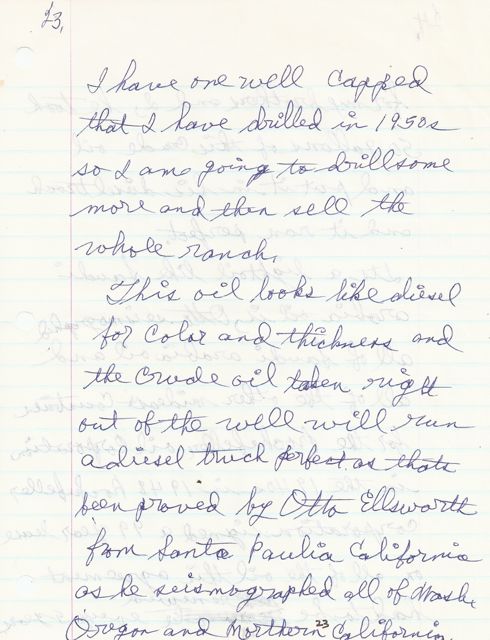 23,
I have one well capped
that I have drilled in 1950s
so I am going to drill some
more and then sell the
whole ranch,
This oil looks like diesel
for color and thickness and
the crude oil taken right
out of the well will run
a diesel truck perfect as thats
been proved by Otto Ellsworth
from Santa Paulia California
as he seismographed all of Wash.
Oregon and Northern California
23